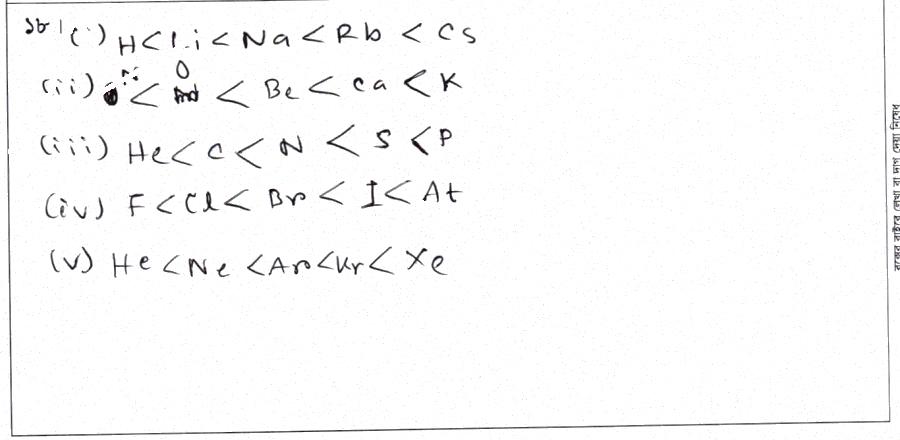 ১৮। (i) H < Li < Na < Rb < Cs
(ii) < O < Be < Ca < K
(iii) He < C < N < S < P
(iv) F < Cl < Br < I < At
(v) He < Ne < Ar < Kr < Xe
বক্সের বাইরে লেখা বা দাগ দেয়া নিষেধ